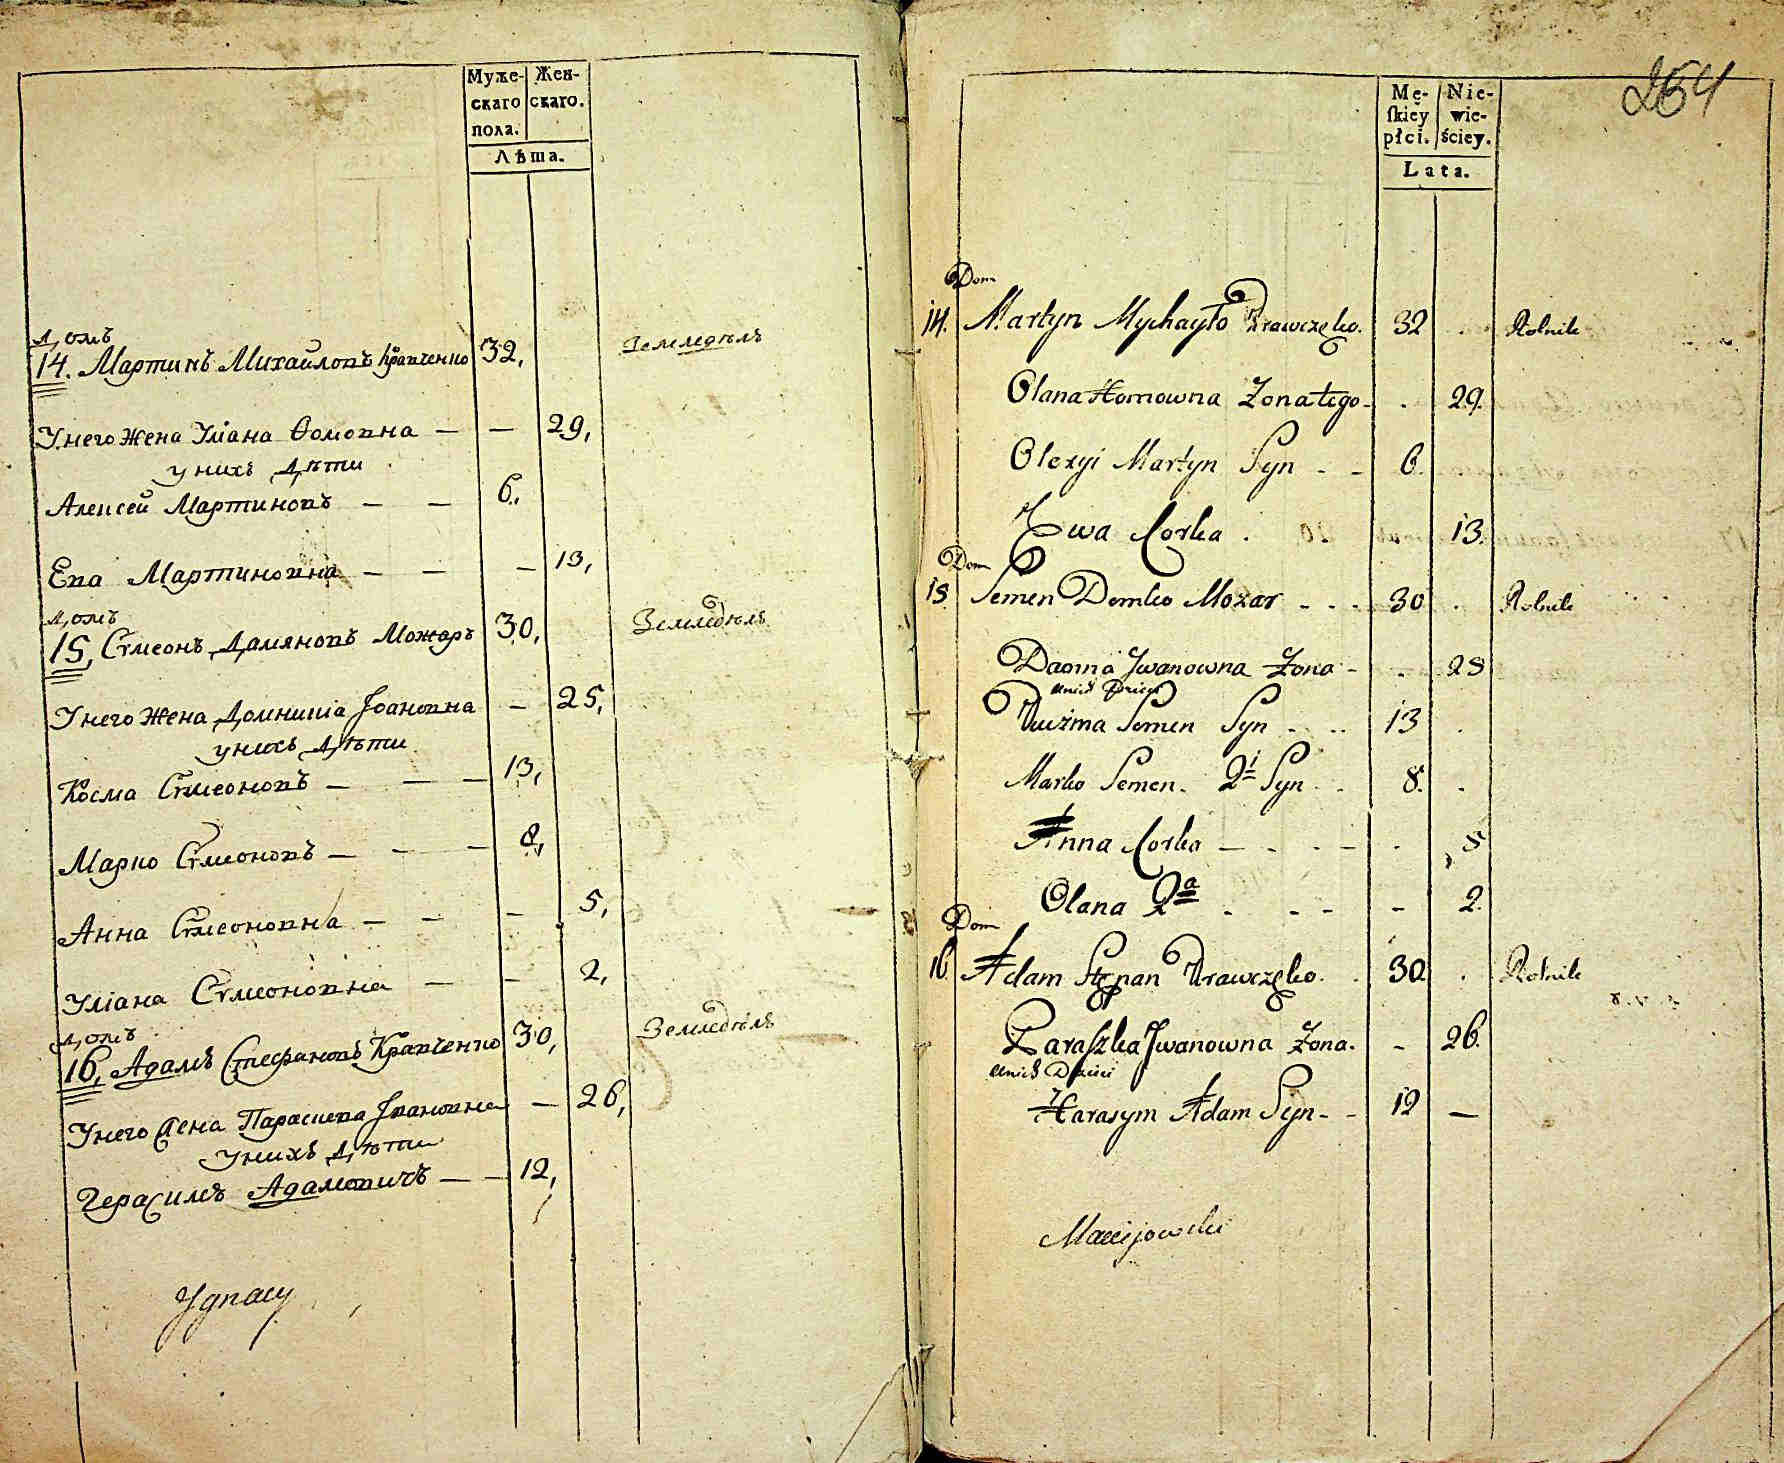 Муже- Жен-
скаго скаго.
пола.
Лѣта.
Домъ
14. Мартинъ Михайловъ Кравченко 32, Земледѣлъ
У него жена Улiана Ѳомовна — — 29,
у нихъ дѣти
Алексей Мартиновъ — — 6,
Ева Мартиновна — — — 13,
Домъ
15, Сѵмеонъ Дамяновъ Можаръ 30, Земледѣлъ
У него жена Домникiа Iоановна — 25,
у нихъ дѣти
Косма Сѵмеоновъ — — — 13,
Марко Сѵмеоновъ — — — 8,
Анна Сѵмеоновна — — — 5,
Улiана Сѵмеоновна — — 2,
Домъ
16, Адамъ Стефановъ Кравченко 30, Земледѣлъ
У него жена Параскева Iвановна — 26,
У нихъ дѣти
Герасимъ Адамовичъ — — 12,
Ygnacy
254
Mę- Nie-
skiey wie-
płci. ściey.
Lata.
Dom
14. Martyn Mychayło Krawczęko. 32 . Rolnik
Olana Homowna Zona tego - . 29.
Olexyi Martyn Syn - - 6.
Ewa Corka . 13.
Dom
15 Semen Demko Mozar - - - 30 . Rolnik
Domna Jwanowna Zona - . 25
Unich Dzieci
Kuźma Semen Syn - .. 13 .
Marko Semen. 2i Syn . . 8. .
Anna Corka — - - - . 5
Olana 2a . - - - 2.
Dom
16 Adam Stepan Krawczęko. . 30 . Rolnik
Paraszka Jwanowna Zona. - 26.
Unich Dzieci
Harasym Adam Syn - - 12 —
Maciejowski